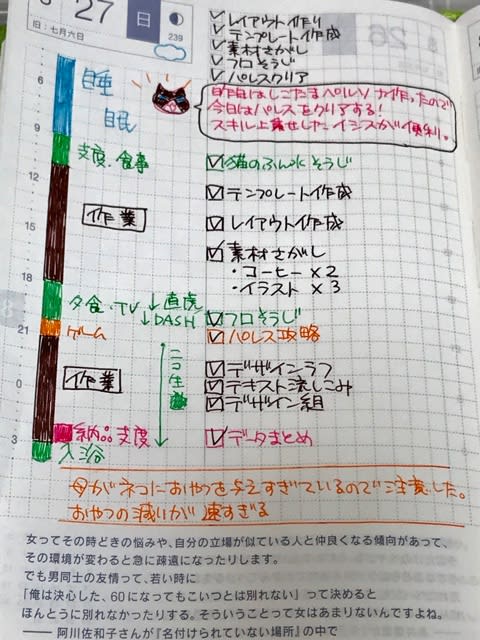 27 日
旧:七月六日
239
26
☑レイアウト作り
☑テンプレート作成
☑素材さがし
☑フロそうじ
☑パレスクリア
昨日はしこたまペルソナ作ったので
今日はパレスをクリアする!
スキル上乗せしたイシスが便利。
6
睡眠
9
支度・食事
☑猫のふん水そうじ
12
☑テンプレート作成
作業
15
☑レイアウト作成
☑素材さがし
・コーヒー×2
・イラスト×3
18
夕食・TV ↓直虎
↓DASH
☑フロそうじ
21
ゲーム
☑パレス攻略
ニコ生
0
作業
☑デザインラフ
☑テキスト流しこみ
☑デザイン組
納品支度
☑データまとめ
3
入浴
母がネコにおやつを与えすぎているので注意した。
おやつの減りが速すぎる
女ってその時どきの悩みや、自分の立場が似ている人と仲良くなる傾向があって、
その環境が変わると急に疎遠になったりします。
でも男同士の友情って、若い時に
「俺は決心した、60になってもこいつとは別れない」って決めると
ほんとうに別れなかったりする。そういうことって女はあまりないんですよね。
―― 阿川佐和子さんが『名付けられていない場所』の中で